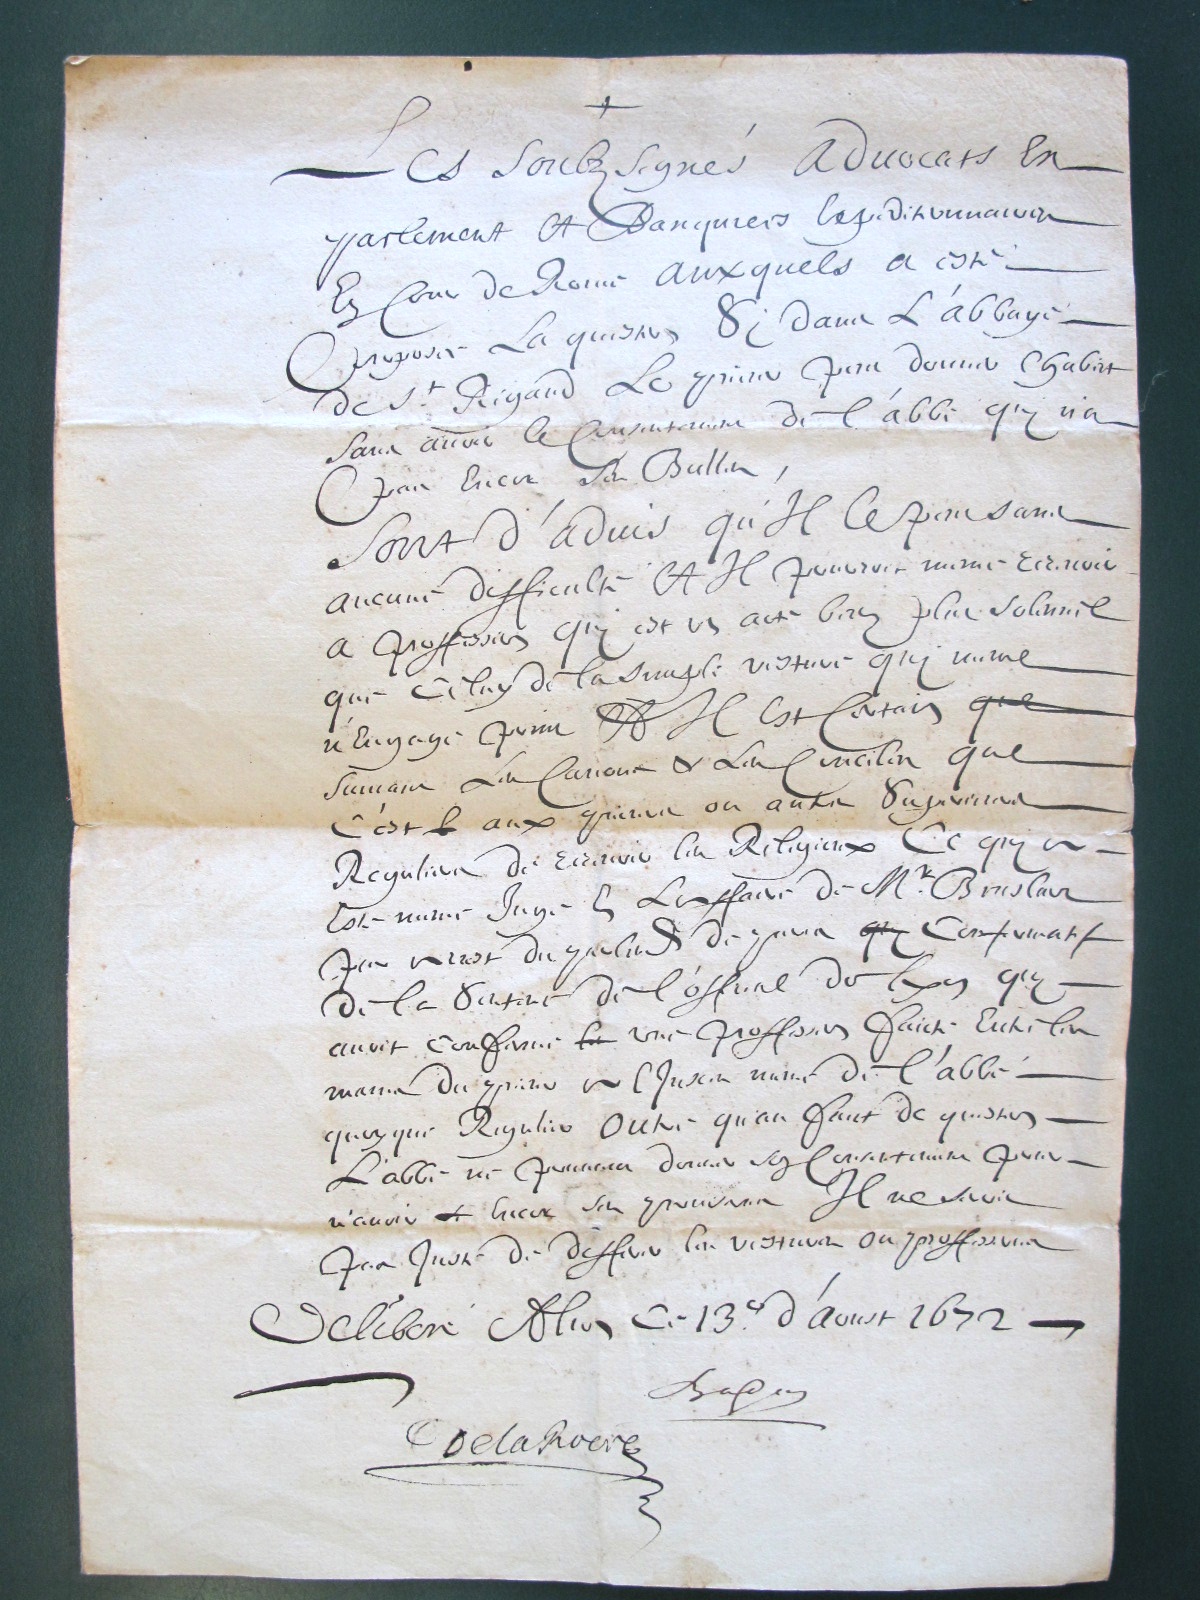 +
Les Soubzsignés Advocats En
parlement Et Banquiers Expeditionnaires
En Cour de Rome auxquels a esté
Proposé La question Si dans L'abbaye
de St Rigaud Le prieur peut donner l'habit
sans avoir le Consentement de l'abbé quy n'a
Pas Encor Ses Bulles,
Sont d'advis qu'Il le peut sans
aucune difficulté Et Il pourroit mesme recevoir
a proffession quy est un acte bien plus solemnel
que celuy de la simple vesture quy mesme
n'Engage point Et Il Est Certain que
suivant Les Canons & Les Conciles que
c'est aux prieurs ou autres Superieurs
Reguliers de recevoir les Religieux Ce quy a
Esté mesme Jugé En L'affaire de Mr
par arrest du parlement de paris quy Confirmatif
de la Sentence de l'official de quy
avoit Confirmé la une proffession faicte Entre les
mains du prieur a l'Insceu mesme de l'abbé
quoyque Regulier Outre qu'au faict de question
L'abbé ne pouvant donner son Consentement pour
n'avoir Encor ses provisions Il ne seroit
pas Juste de differer les vestures ou proffessions
Deliberé A Lion Ce 13e d'Aoust 1672
DelaRoere